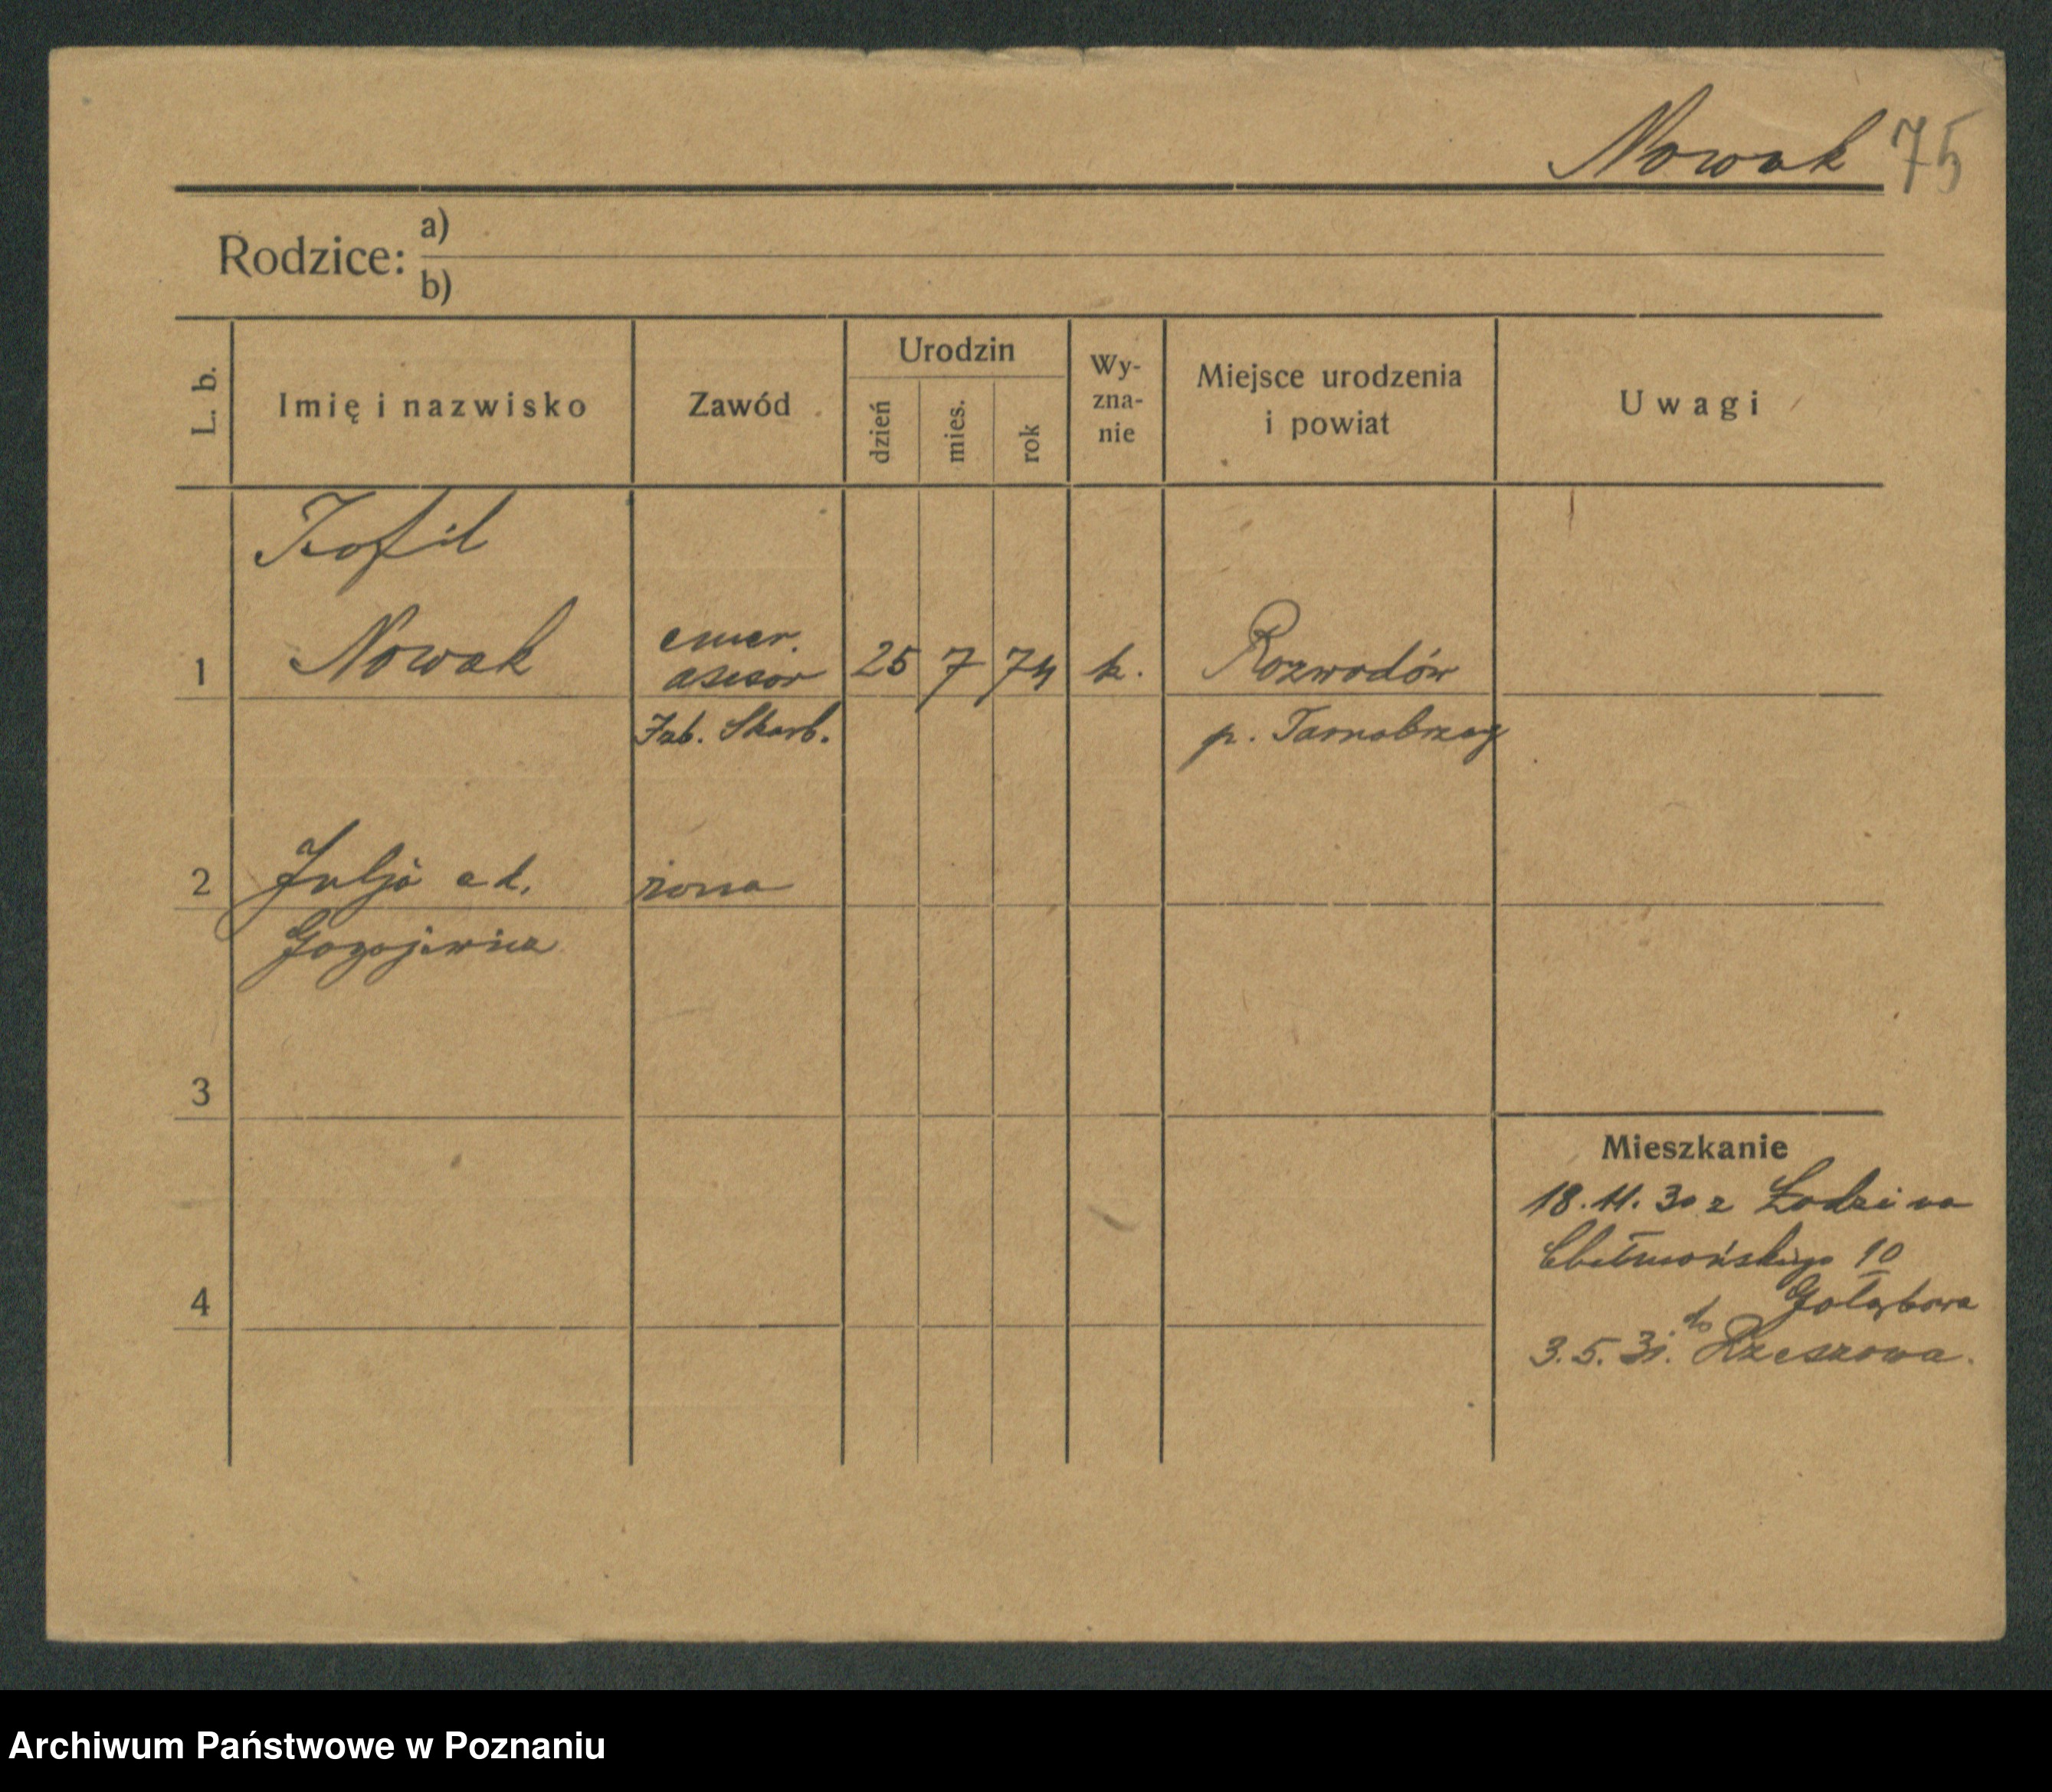 Nowak 75
Rodzice: a)
b)
L. b.
Imię i nazwisko
Zawód
Urodzin
dzień
mies.
rok
Wy-
zna-
nie
Miejsce urodzenia
i powiat
Uwagi
Teofil
1 Nowak emer. 25 7 74 k. Rozwadów
asesor
Izb. Skarb. p. Tarnobrzeg
2 Julja ad. żona
3
Mieszkanie
18.11.30 z Łodzi na
Chełmońskiego 10
Gołębowa
4
3.5.31. do Rzeszowa.
Archiwum Państwowe w Poznaniu